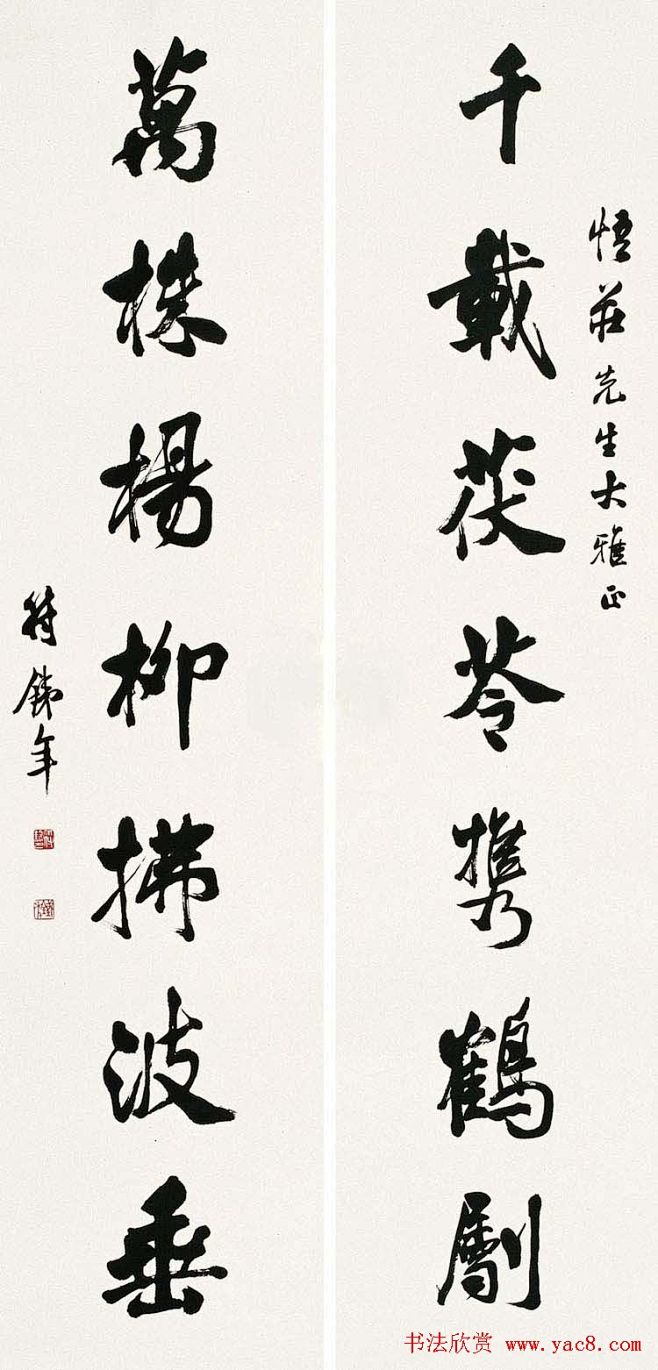 悟莊先生大雅正
千載茯苓携鶴劚
萬株楊柳拂波垂
符鐵年
书法欣赏 www.yac8.com